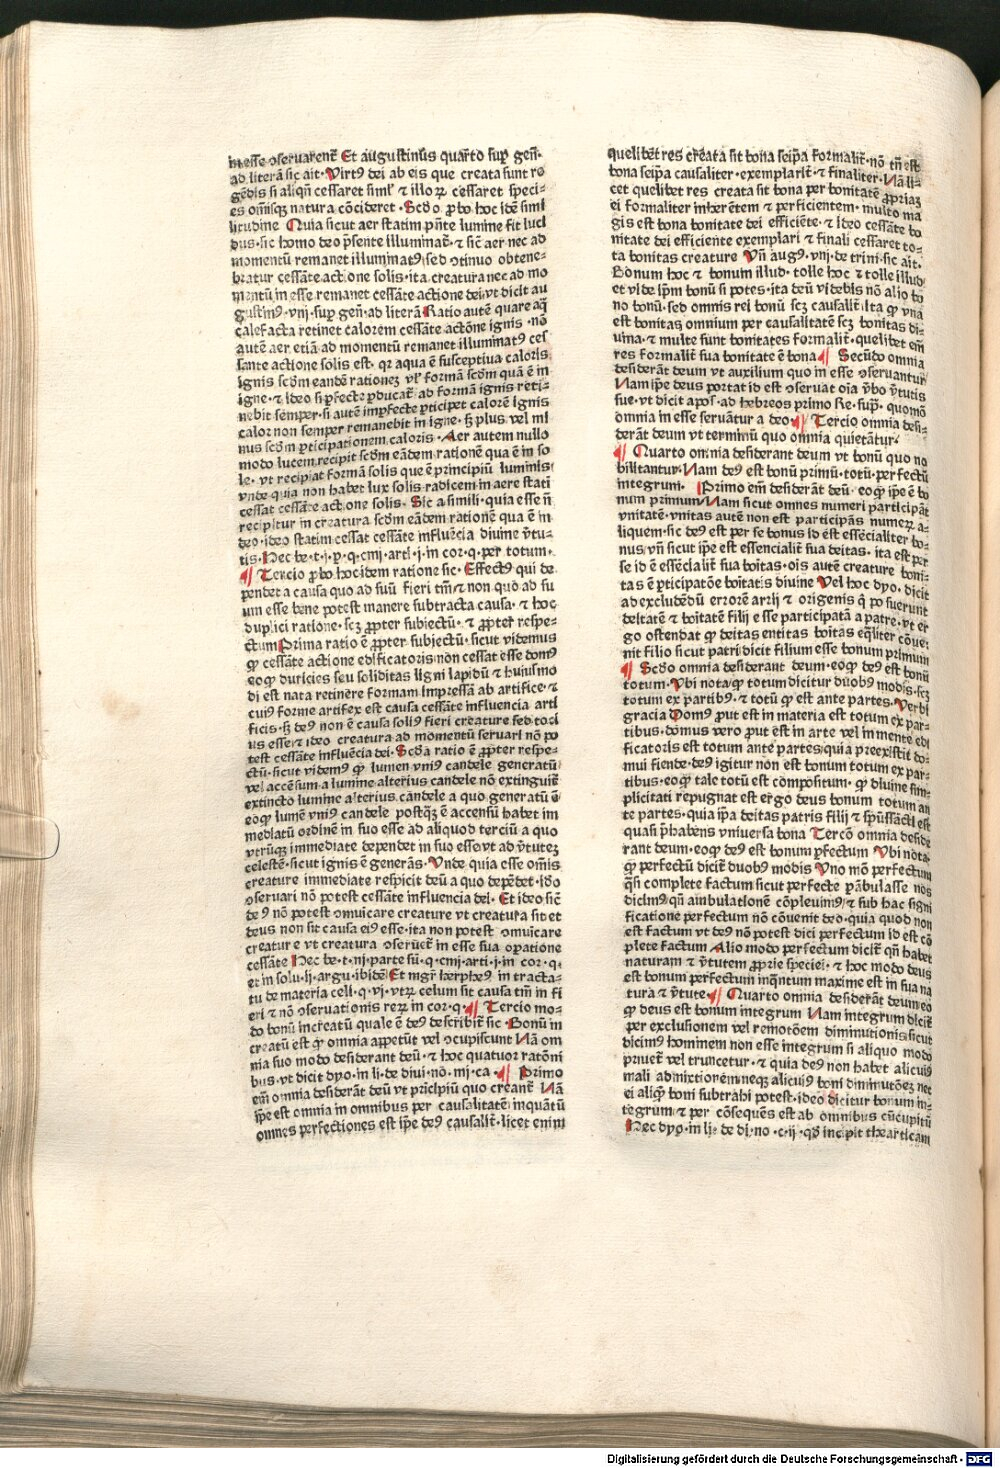 in esse ɔseruarent᷑ Et augustinus quarto sup gen̄·
ad literā sic ait· Virtꝰ dei ab eis que creata sunt re
gēdis si aliqñ cessaret siml᷑ ⁊ illoꝝ cessaret speci-
es om̄isqꝫ natura cōcideret· Scd̄o ꝓbo hoc idē simi
litudine Quia sicut aer statim p̄nte lumine fit luci
dus· sic homo deo p̄sente illuminat᷑· ⁊ sic̄ aer nec ad
momentū remanet illuminatꝰ sed ɔtinuo obtene-
bratur cessāte actione solis· ita creatura nec ad mo
mentū in esse remanet cessāte actione dei· vt dicit au
gustinꝰ· viij· sup gen̄· ad literā Ratio autē quare aq̄
calefacta retinet calorem cessāte actōne ignis· nō
autē aer etiā ad momentū remanet illuminatꝰ ces
sante actione solis est· qr aqua ē susceptiua caloris
ignis scd̄m eandē rationeꝫ vl᷑ formā scd̄m quā ē in
igne· ⁊ ideo si ꝑfecte ꝓducat᷑ ad formā ignis reti-
nebit semper· si autē imꝑfecte ꝑticipet calorē ignis
calor non semper remanebit in igne· sꝫ plus vel mi
nus scd̄m ꝑticipationem caloris· Aer autem nullo
modo lucem recipit scd̄m eādem rationē qua ē in so
le· vt recipiat formā solis que ē principiū luminis
vnde quia non habet lux solis radicem in aere stati
cessat cessāte actione solis· Sic a simili· quia esse nō
recipitur in creatura scd̄m eādem rationē qua ē in
deo· ideo statim cessat cessāte influēcia diuine v̄tu-
tis· Hec be· t· j· p· q· ciiij· arti· j· in cor· q· per totum·
¶ Tercio ꝓbo hoc idem ratione sic· Effectꝰ qui de
pendet a causa quo ad suū fieri tm̄ ⁊ non quo ad su
um esse bene potest manere subtracta causa· ⁊ hoc
duplici ratione· scꝫ ꝓpter subiectū· ⁊ ꝓpter respe-
ctum Prima ratio ē ꝓpter subiectū· sicut videmus
ꝙ cessāte actione edificatoris non cessat esse domꝰ
eoꝙ duricies seu soliditas ligni lapidū ⁊ huiusmo
di est nata retinere formam impressā ab artifice· ⁊
cuiꝰ forme artifex est causa cessāte influencia arti
ficis· sꝫ deꝰ non ē causa soliꝰ fieri creature sed toci
us esse· ⁊ ideo creatura ad momentū seruari nō po
test cessāte influēcia dei· Scd̄a ratio ē ꝓpter respe-
ctū· sicut videmꝰ ꝙ lumen vniꝰ candele generatū
vel accēsum a lumine alterius candele nō extinguit᷑
extincto lumine alterius candele a quo generatū ē
eoꝙ lumē vniꝰ candele postqꝫ ē accensū habet im
mediatū ordinē in suo esse ad aliquod terciū a quo
vtrūqꝫ immediate dependet in suo esse vt ad v̄tuteꝫ
celestē· sicut ignis ē generās· Vnde quia esse om̄is
creature immediate respicit deū a quo depēdet· ido
ɔseruari nō potest cessāte influencia dei· Et ideo sic̄
deꝰ nō potest ɔmuicare creature vt creatura sit et
deus non sit causa eiꝰ esse· ita non potest ɔmuicare
creature vt creatura ɔseruet᷑ in esse sua oꝑatione
cessāte Hec be· t· nj· parte su· q· ciiij· arti· j· in cor· q·
et in solu· ij· argu· ibidē Et mgr̄ herpheꝰ in tracta-
tu de materia celi· q· vj· vtꝝ celum sit causa tm̄ in fi
eri ⁊ nō ɔseruationis reꝝ in cor· q· ¶ Tercio mo-
do bonū increatū quale ē deꝰ describit᷑ sic· Bonū in
creatū est ꝙ omnia appetūt vel ɔcupiscunt Nā om
nia suo modo desiderant deū· ⁊ hoc quatuor ratōni
bus· vt dicit dyo· in li· de diui· no· iiij· ca· ¶ Primo
em̄ omnia desiderāt deū vt pricipiū quo creant᷑ Nā
ip̄e est omnia in omnibus per causalitatē inquātū
omnes perfectiones est ip̄e deꝰ causalit᷑· licet enim
quelibet res creata sit bona seip̄a formalit᷑· nō tn̄ est
bona seipa causaliter· exemplarit᷑· ⁊ finaliter· Nā li-
cet quelibet res creata sit bona per bonitatē ꝓpriaꝫ
ei formaliter inherētem ⁊ perficientem· multo ma
gis est bona bonitate dei efficiēte· ⁊ ideo cessāte bo
nitate dei efficiente exemplari ⁊ finali cessaret to-
ta bonitas creature Vn̄ augꝰ· viij· de trini· sic ait·
Bonum hoc ⁊ bonum illud· tolle hoc ⁊ tolle illud
et vide ip̄m bonū si potes· ita deū videbis nō alio bo
no bonū· sed omnis rei bonū scꝫ causalit᷑· ita ꝙ vna
est bonitas omnium per causalitatē scꝫ bonitas di-
uina· ⁊ multe sunt bonitates formalit᷑· quelibet em̄
res formalit᷑ sua bonitate ē bona ¶ Secūdo omnia
desiderāt deum vt auxilium quo in esse ɔseruantur
Nam ip̄e deus portat id est ɔseruat oīa v̄bo v̄tutis
sue· vt dicit apos᷑· ad hebreos primo Re· supͣ· quomō
omnia in esse seruātur a deo ¶ Tercio omnia desi-
derāt deum vt terminū quo omnia quietātur·
¶ Quarto omnia desiderant deum vt bonū quo no
bilitantur· Nam deꝰ est bonū primū· totū· perfectū
integrum· Primo em̄ desiderāt deū· eoꝙ ip̄e ē bo
num primum Nam sicut omnes numeri participāt
vnitatē· vnitas autē non est participās numerꝝ a-
liquem· sic deꝰ est per se bonus id est essēcialiter bo-
nus· vn̄ sicut ip̄e est essencialit᷑ sua deitas· ita est per
se id ē essēcialit᷑ sua bōitas· oīs autē creature boni-
tas ē ꝑticipatōe bōitatis diuine Vel hoc dyo· dicit
ad excludēdū errorē arrij ⁊ origenis q̄ posuerunt
deitatē ⁊ bōitatē filij esse participatā a patre· vt er
go ostendat ꝙ deitas entitas bōitas eq̄liter cōue-
nit filio sicut patri dicit filium esse bonum primum
¶ Scd̄o omnia desiderant deum· eoꝙ deꝰ est bonū
totum· Vbi nota ꝙ totum dicitur duobꝰ modis· scꝫ
totum ex partibꝰ· ⁊ totū ꝙ est ante partes· Verbi
gracia Domꝰ ꝓut est in materia est totum ex par-
tibus· domus vero ꝓut est in arte vel in mente edi
ficatoris est totum ante partes quia preexistit do-
mui fiende· deꝰ igitur non est bonum totum ex par-
tibus· eoꝙ tale totū est compositum· ꝙ diuine sim-
plicitati repugnat est ergo deus bonum totum an
te partes· quia ip̄a deitas patris filij ⁊ sp̄ussācti est
quasi p̄habens vniuersa bona Tercō omnia deside
rant deum· eoꝙ deꝰ est bonum ꝑfectum Vbi nota
ꝙ perfectū dicit᷑ duobꝰ modis Vno mō perfectum
q̄si complete factum sicut perfecte ꝑābulasse nos
dicimꝰ qn̄ ambulationē cōpleuimꝰ ⁊ sub hac signi
ficatione perfectum nō cōuenit deo· quia quod non
est factum vt deꝰ nō potest dici perfectum id est cō
plete factum Alio modo perfectum dicit᷑ qn̄ habet
naturam ⁊ v̄tutem ꝓprie speciei· ⁊ hoc modo deus
est bonum perfectum inqntum maxime est in sua na
tura ⁊ v̄tute ¶ Quarto omnia desiderāt deum eo
ꝙ deus est bonum integrum Nam integrum dicit᷑
per exclusionem vel remotōem diminutionis· sicut
dicimꝰ hominem non esse integrum si aliquo modo
priuet᷑ vel truncetur· ⁊ quia deꝰ non habet alicuiꝰ
mali admixtiorem neqꝫ alicuiꝰ boni diminutōeꝫ nec
ei aliqͣ boni subtrahi potest· ideo dicitur bonum in-
tegrum ⁊ per cōsequēs est ab omnibus cūcupitū
Hec dyo· in li· de di· no· c· ij· qd̄ incipit thearticam
Digitalisierung gefördert durch die Deutsche Forschungsgemeinschaft - DFG